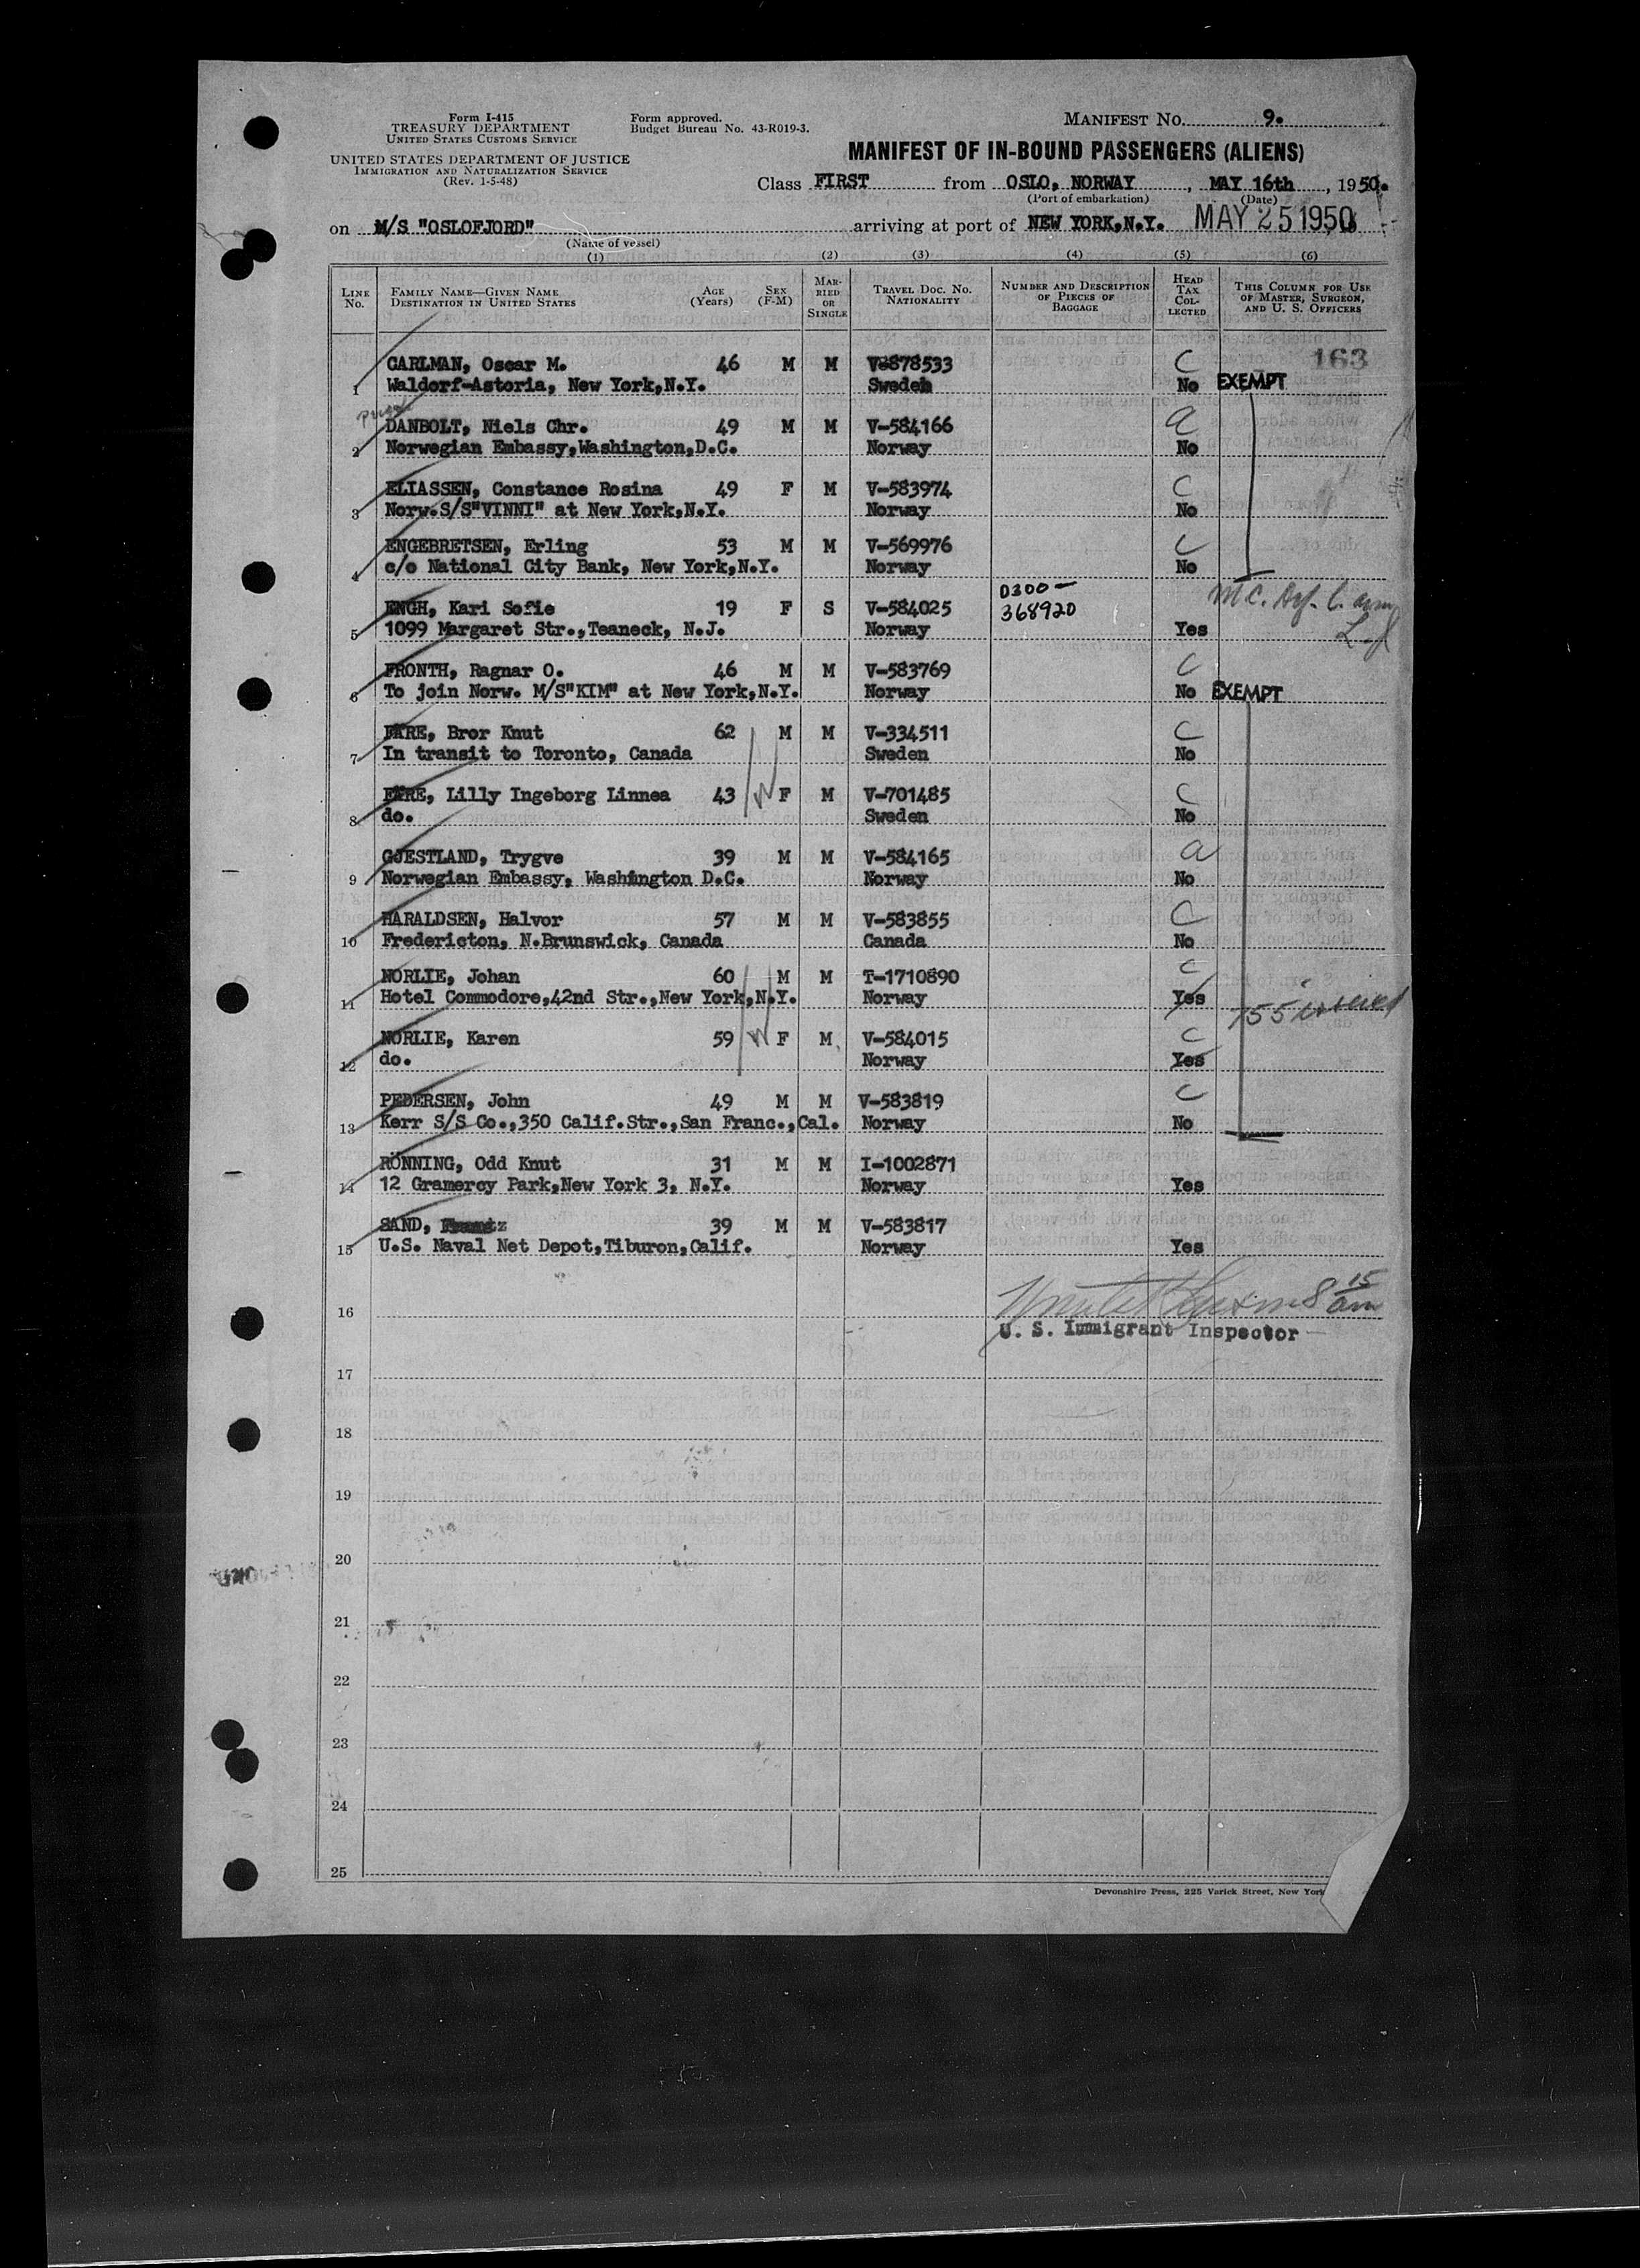 Form I-415
TREASURY DEPARTMENT
UNITED STATES CUSTOMS SERVICE
UNITED STATES DEPARTMENT OF JUSTICE
IMMIGRATION AND NATURALIZATION SERVICE
(Rev. 1-5-48)
Form approved.
Budget Bureau No. 43-R019-3.
MANIFEST NO. 9.
MANIFEST OF IN-BOUND PASSENGERS (ALIENS)
Class FIRST from OSLO, NORWAY, MAY 16th, 1950.
(Port of embarkation) (Date)
on M/S "OSLOFJORD" arriving at port of NEW YORK,N.Y. MAY 25 1950
(Name of vessel)
(1) (2) (3) (4) (5) (6)
LINE NO. FAMILY NAME—GIVEN NAME DESTINATION IN UNITED STATES AGE (Years) SEX (F-M) MARRIED OR SINGLE TRAVEL DOC. NO. NATIONALITY NUMBER AND DESCRIPTION OF PIECES OF BAGGAGE HEAD TAX COLLECTED THIS COLUMN FOR USE OF MASTER, SURGEON, AND U. S. OFFICERS
163
CARLMAN, Oscar M. 46 M M V-878533 C
1 Waldorf-Astoria, New York,N.Y. Sweden No EXEMPT
DANBOLT, Niels Chr. 49 M M V-584166 a
2 Norwegian Embassy,Washington,D.C. Norway No
ELIASSEN, Constance Rosina 49 F M V-583974 C
3 Norw.S/S"VINNI" at New York,N.Y. Norway No
ENGEBRETSEN, Erling 53 M M V-569976 C
4 c/o National City Bank, New York,N.Y. Norway No
0300-
ENGH, Kari Sofie 19 F S V-584025 368920
5 1099 Margaret Str.,Teaneck, N.J. Norway Yes
FRONTH, Ragnar O. 46 M M V-583769 C
6 To join Norw. M/S"KIM" at New York,N.Y. Norway No EXEMPT
FÄRE, Bror Knut 62 M M V-334511 C
7 In transit to Toronto, Canada Sweden No
FÄRE, Lilly Ingeborg Linnea 43 F M V-701485 C
8 do. Sweden No
GJESTLAND, Trygve 39 M M V-584165 a
9 Norwegian Embassy, Washington D.C. Norway No
HARALDSEN, Halvor 57 M M V-583855 C
10 Fredericton, N.Brunswick, Canada Canada No
NORLIE, Johan 60 M M T-1710890 C
11 Hotel Commodore,42nd Str.,New York,N.Y. Norway Yes
NORLIE, Karen 59 F M V-584015 C
12 do. Norway Yes
PEDERSEN, John 49 M M V-583819 C
13 Kerr S/S Co.,350 Calif.Str.,San Franc.,Cal. Norway No
RÖNNING, Odd Knut 31 M M I-1002871
14 12 Gramercy Park,New York 3, N.Y. Norway Yes
SAND, 39 M M V-583817
15 U.S. Naval Net Depot,Tiburon,Calif. Norway Yes
8 15 am
16
U. S. Immigrant Inspector
17
18
19
20
21
22
23
24
25
Devonshire Press, 225 Varick Street, New York